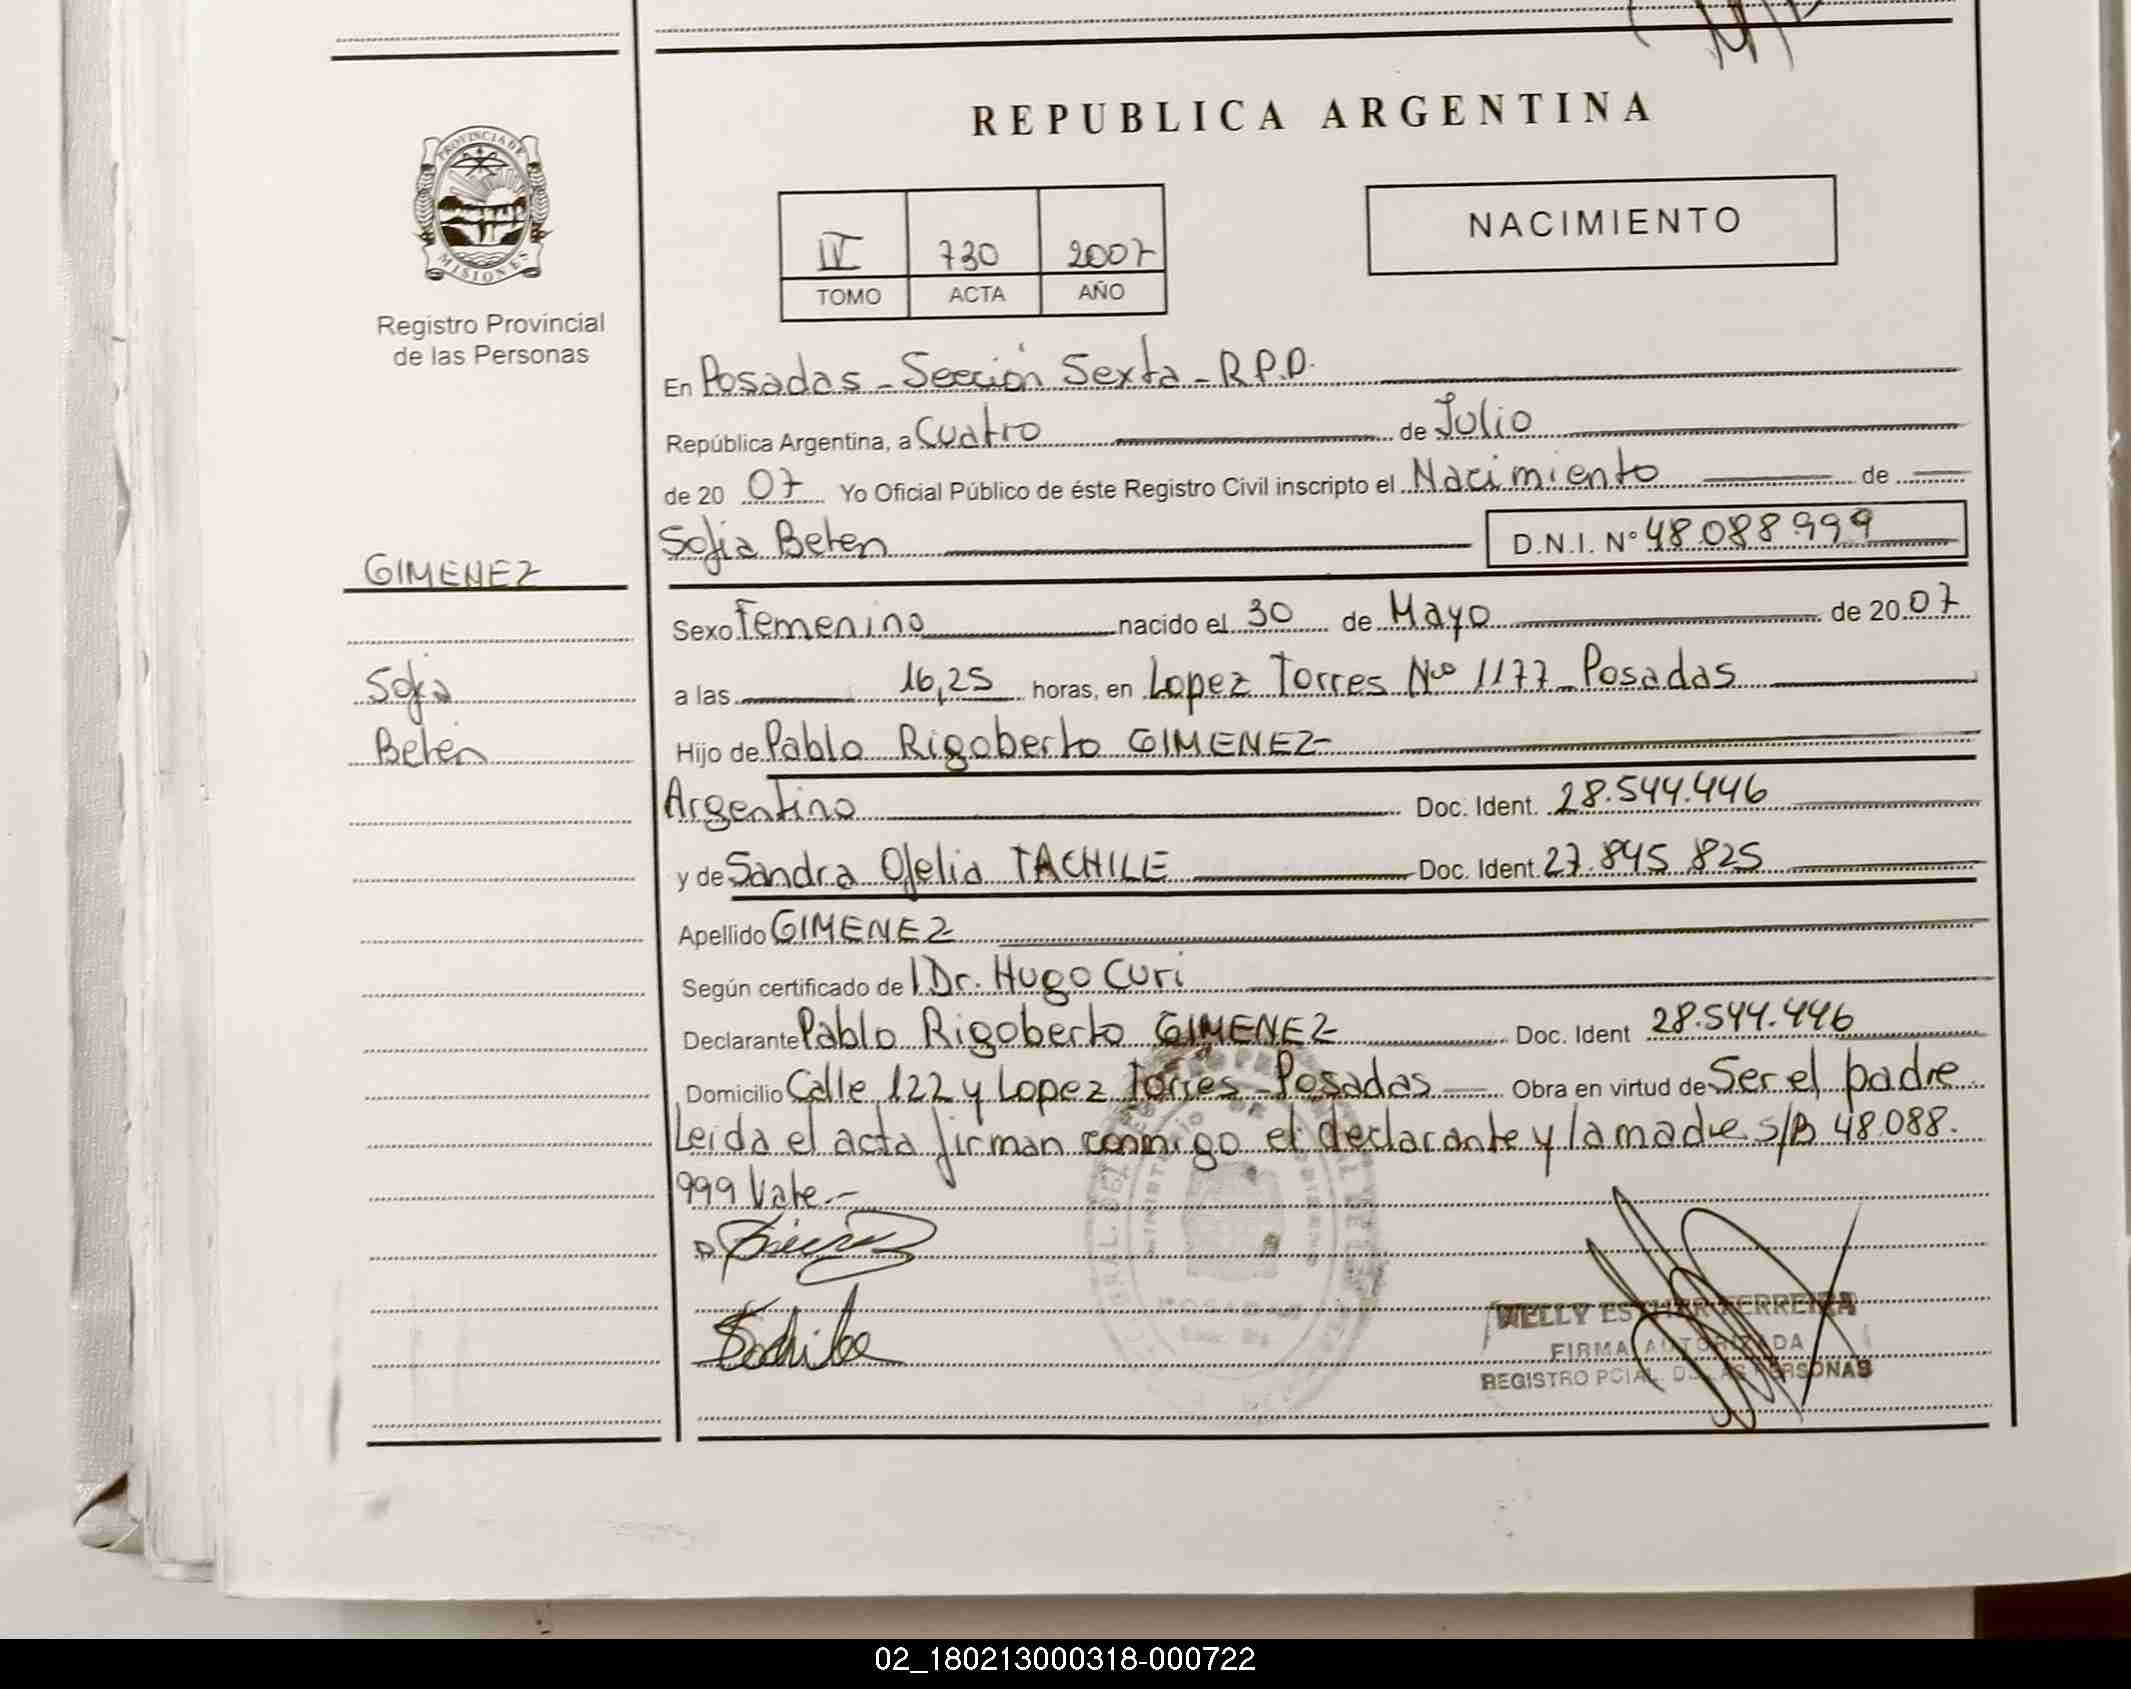 REPUBLICA ARGENTINA
PROVINCIA DE
MISIONES
Registro Provincial
de las Personas
IV 730 2007
TOMO ACTA AÑO
NACIMIENTO
En Posadas - Sección Sexta - R.P.P.
República Argentina, a Cuatro de Julio
de 20 07 Yo Oficial Público de éste Registro Civil inscripto el Nacimiento de
Sofia Belen D.N.I. N° 48.088.999
GIMENEZ
Sexo Femenino nacido el 30 de Mayo de 20 07
Sofia
a las 16,25 horas, en Lopez Torres Nº 1177 - Posadas
Belen
Hijo de Pablo Rigoberto GIMENEZ
Argentino Doc. Ident. 28.544.446
y de Sandra Ofelia TACHILE Doc. Ident. 27.845.825
Apellido GIMENEZ
Según certificado de l Dr. Hugo Curi
Declarante Pablo Rigoberto GIMENEZ Doc. Ident 28.544.446
Domicilio Calle 122 y Lopez Torres - Posadas Obra en virtud de Ser el padre
Leida el acta firman conmigo el declarante y la madre s/B 48.088.
999 Vale.-
POSADAS
FERREIRA
FIRMA AUTORIZADA
REGISTRO PCIAL. DE LAS PERSONAS
02_180213000318-000722